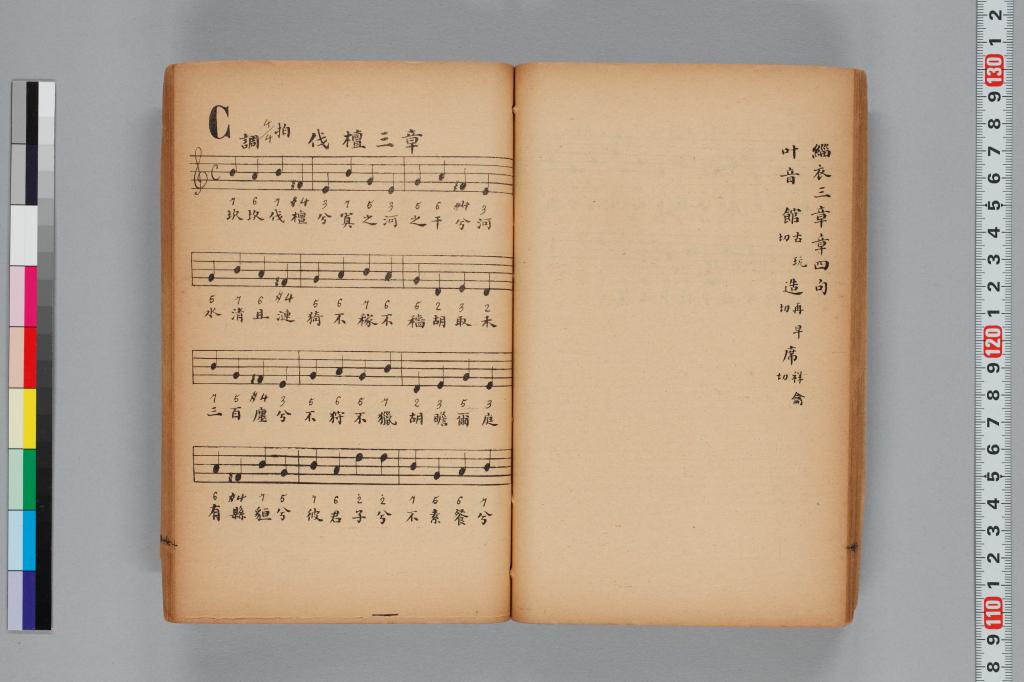 C 調 4/4 拍 伐檀三章
7 6 7 #4 3 7 5 3 5 6 #4 3
坎坎伐檀兮寘之河之干兮河
5 7 6 #4 5 6 7 6 5 2 3 2
水清且漣猗不稼不穡胡取禾
7 5 #4 3 5 6 5 7 2 3 5 3
三百廛兮不狩不獵胡瞻爾庭
6 #4 7 5 7 6 2 2 7 5 6 7
有縣貆兮彼君子兮不素餐兮
緇衣三章章四句
叶音 館古玩切 造再早切 席祥龠切
8 9 110 1 2 3 4 5 6 7 8 9 120 1 2 3 4 5 6 7 8 9 130 1 2